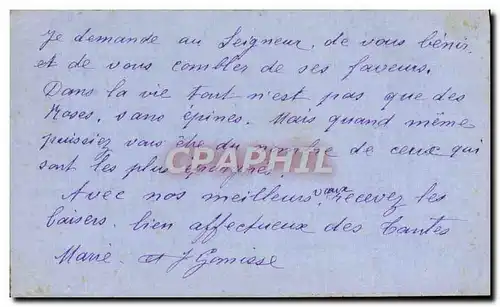 Je demande au Seigneur. de vous bénir.
et de vous combler de ses faveurs.
Dans la vie tout n'est pas que des
Roses. sans épines. Mais quand même
puissiez vous être du nombre de ceux qui
sont les plus épargnés.
Avec nos meilleurs vœux recevez les
baisers. bien affectueux des tantes
Marie et J
CPARAMA